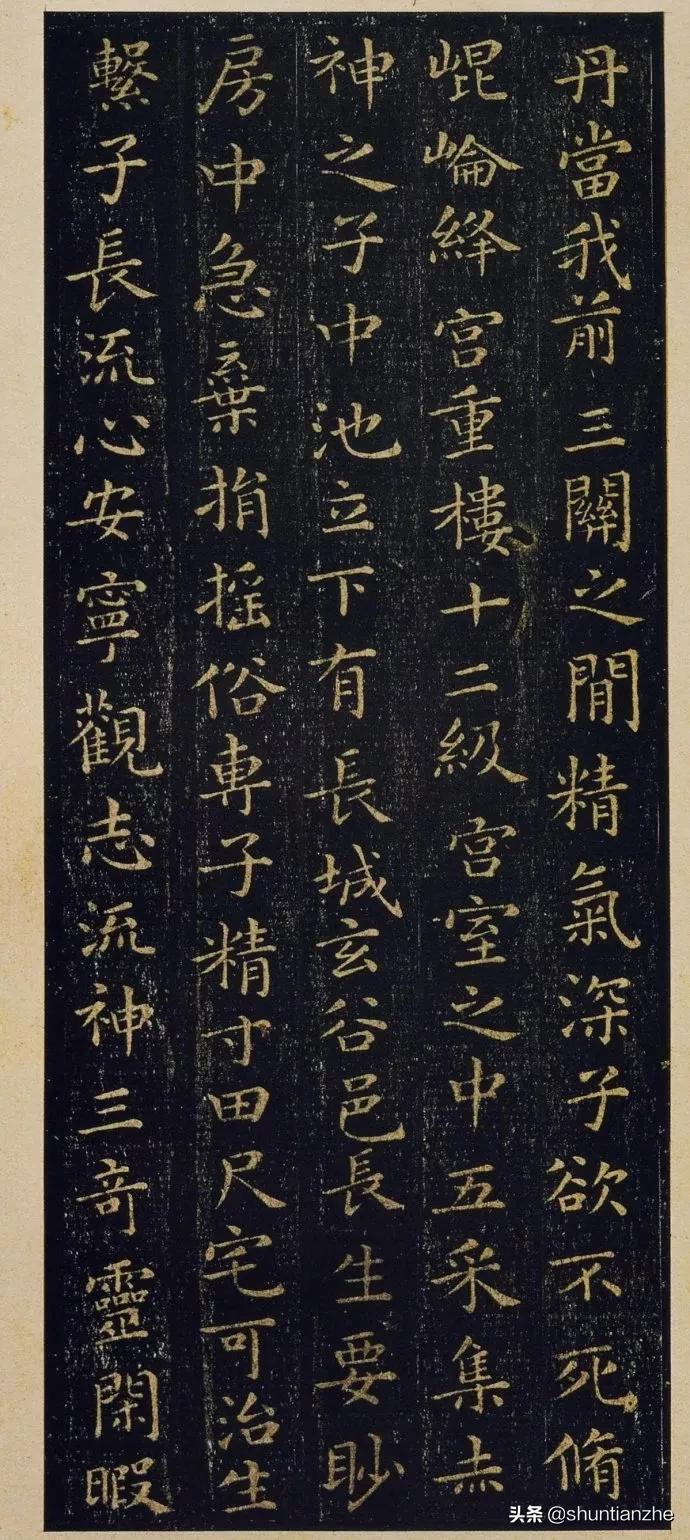 丹當我前三關之間精氣深子欲不死脩
崐崘絳宮重樓十二級宮室之中五采集赤
神之子中池立下有長城玄谷邑長生要眇
房中急棄捐搖俗專子精寸田尺宅可治生
繫子長流心安寧觀志流神三奇靈閑暇
头条@shuntianzhe